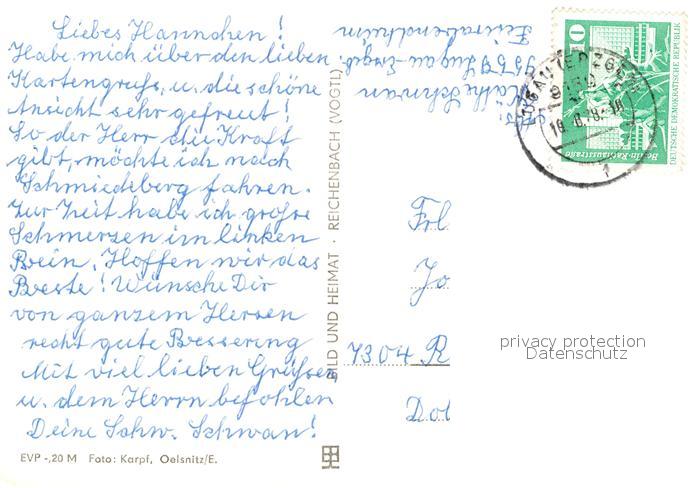 Liebes Hannchen!
Habe mich über den lieben
Kartengruß, u. die schöne
Ansicht sehr gefreut!
So der Herr die Kraft
gibt, möchte ich nach
Schmiedeberg fahren.
Zur Zeit habe ich große
Schmerzen im linken
Bein. Hoffen wir das
Beste! Wünsche Dir
von ganzem Herzen
recht gute Besserung
Mit viel lieben Grüßen
u. dem Herrn befohlen
Deine Schw. Schwan!
EVP -,20 M Foto: Karpf, Oelsnitz/E.
BILD UND HEIMAT · REICHENBACH (VOGTL)
Käthe Schwan
9159 Lugau-Erzgeb.
Feierabendheim
10
DEUTSCHE DEMOKRATISCHE REPUBLIK
Berlin-Rathausstraße
LUGAU (ERZGEB)
9159
1
Frl
Jo
7304 R
Dol
privacy protection
Datenschutz